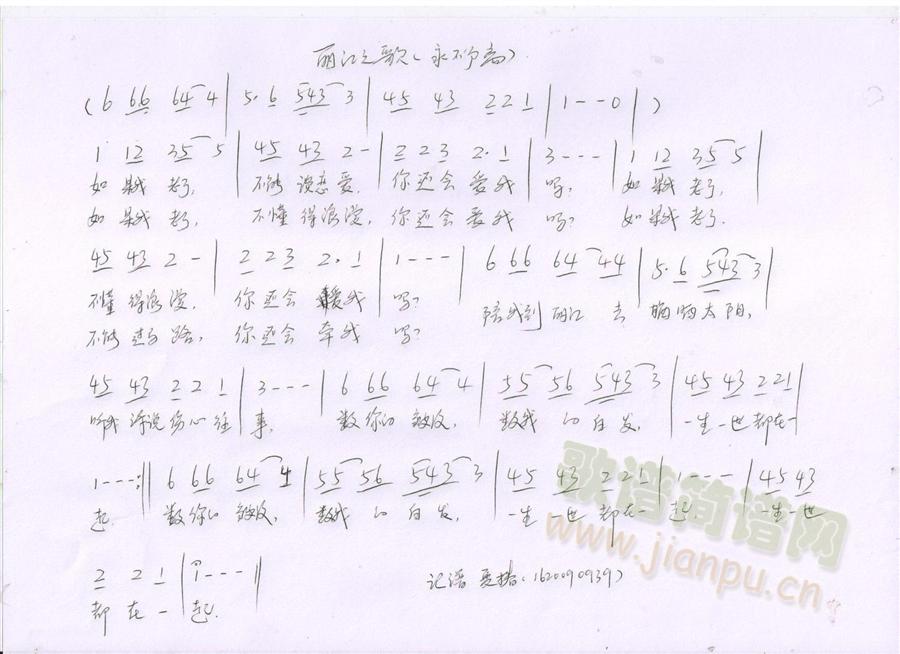 丽江之歌(永不分离)
( 6 66 64 4 | 5. 6 543 3 | 45 43 221 | 1--0 | )
1 12 35 5 | 45 43 2- | 2 2 3 2. 1 | 3--- | 1 12 35 5 |
如果我老了, 不能谈恋爱, 你还会爱我吗? 如果我老了,
如果我老了, 不懂得浪漫, 你还会爱我吗? 如果我老了.
45 43 2 - | 2 2 3 2. 1 | 1--- | 6 66 64 44 | 5. 6 543 3 |
不懂得浪漫, 你还会爱我吗? 陪我到丽江去 晒晒太阳,
不能走路, 你还会牵我吗?
45 43 2 2 1 | 3--- | 6 66 64 4 | 55 56 543 3 | 45 43 221 |
听我诉说伤心往事. 数你的皱纹, 数我的白发, 一生一世都在一
1---:|| 6 66 64 4 | 55 56 543 3 | 45 43 221 | 1--- | 45 43
起. 数你的皱纹, 数我的白发, 一生一世都在一起. 一生一世
2 2 1 | 1--- ||
都在一起.
记谱 (1620090939)
歌谱简谱网
www.jianpu.cn